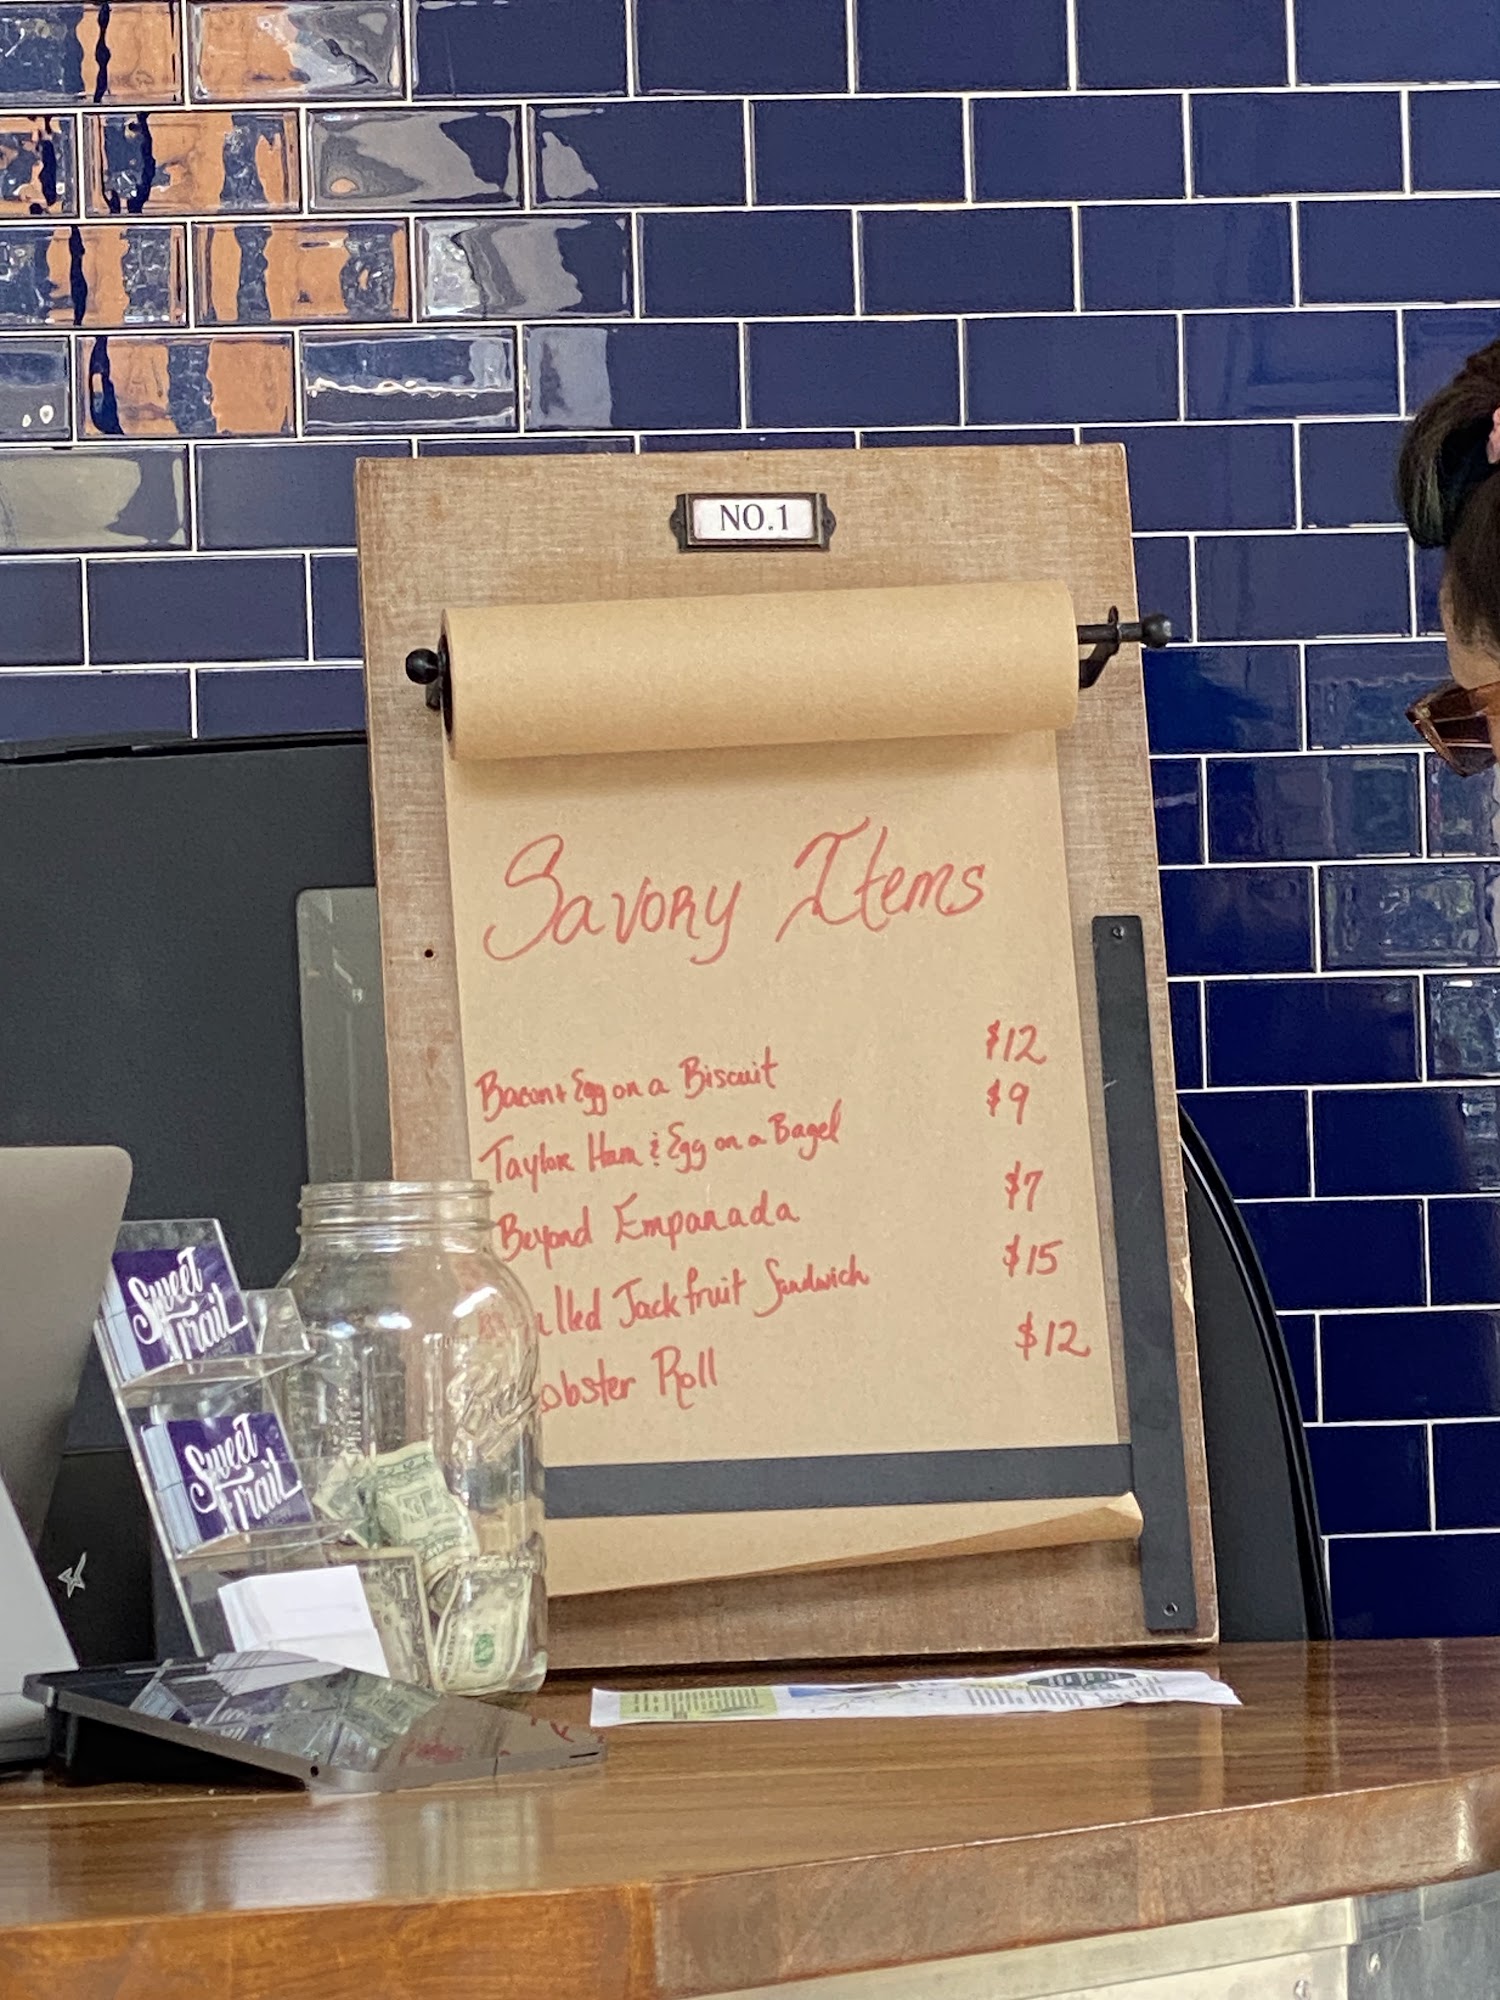 NO.1
Savory Items
Bacon + Egg on a Biscuit $12
Taylor Ham & Egg on a Bagel $9
Beyond Empanada $7
ulled Jackfruit Sandwich $15
obster Roll $12
Sweet
Trail
Sweet
Trail